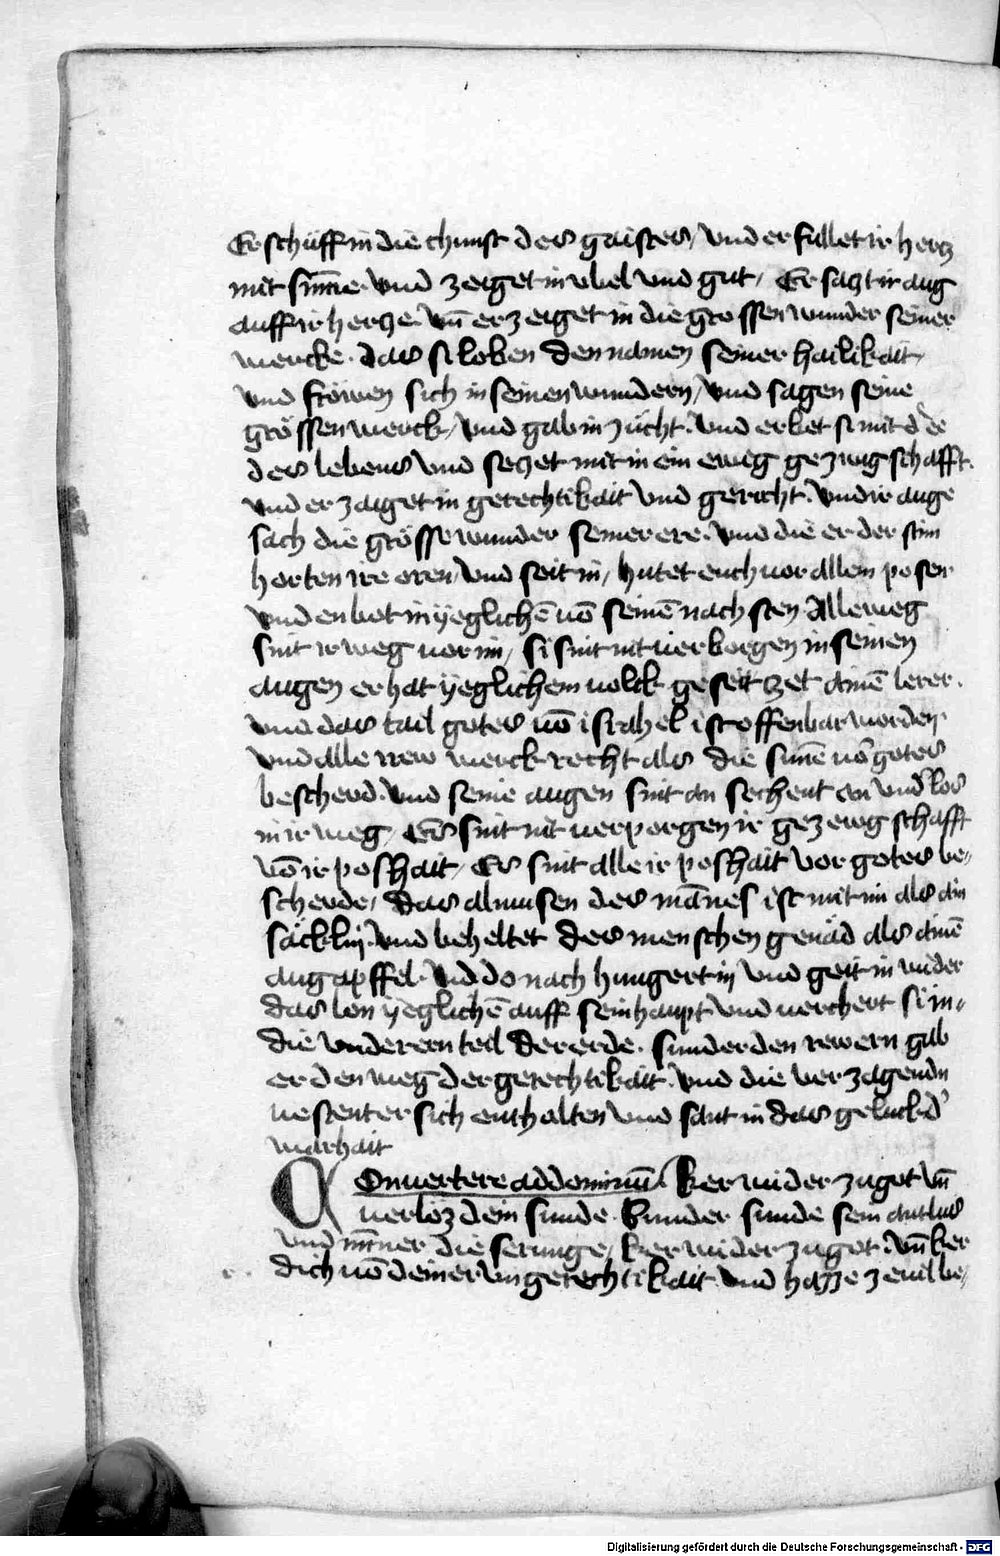 Er schüff in die chunst des gaistes / vnd er fullet ir hercz
mit sinne. vnd zeiget in vbel vnd gut / Er saczt ir aug
auff ir hercze. vn̄ erzeiget in die grossen wunder seiner
wercke. das si loben den namen seiner hailikait /
vnd fröwen sich in seinen wundern / vnd sagen seine
grössen werck / vnd gab in zücht. vnd erbet si mit d' ee
des lebens vnd seczet mit in ein eweg gezwgschafft.
vnd er zaiget in gerechtikait vnd gericht. vnd ir auge
sach die grösse wunder seiner ere. vnd die er der stim
horten ire oren / vnd seit in / hutet euch uor allem posen
vnd enbot in yeglichē uō seinē nachsten Alleweg
sint ir weg uor im / si sint nit uerborgen in seinen
augen er hat yeglichem uolck geseiczet ainē lerer.
vnd das tail gotes uō israhel ist offenbar worden
vnd alle irew werck recht als die sunē uō gotes
bescheid. vnd seine augen sint an sechent an vnd'los
in ir weg / Es sint nit uerporgen ir gezewgschafft
vō ir poshait / Es sint alle ir poshait vor gotes be-
scheide / das almusen des mānes ist mit im als ain
säcklin. vnd beheltet des menschen genäd als ainē
augapffel. vnd do nach hungert in vnd geit in wider
das lon yeglichē auff sein haupt vnd uerchert si in-
die vnderern teil der erde. sunder den rewern gab
er den weg der gerechtikait. vnd die verzagenden
uestent er sich enthalten vnd sant in das geluckd'
warhait
Conuertere ad dominū ker wider zu got vn̄
uerloz dein sunde. Bunder sunde sein antlucz
vnd minner die serunge / ker wider zu got. vn̄ ker
dich uō deiner vngerechtikait. vnd hazze ze vil be-
Digitalisierung gefördert durch die Deutsche Forschungsgemeinschaft - DFG